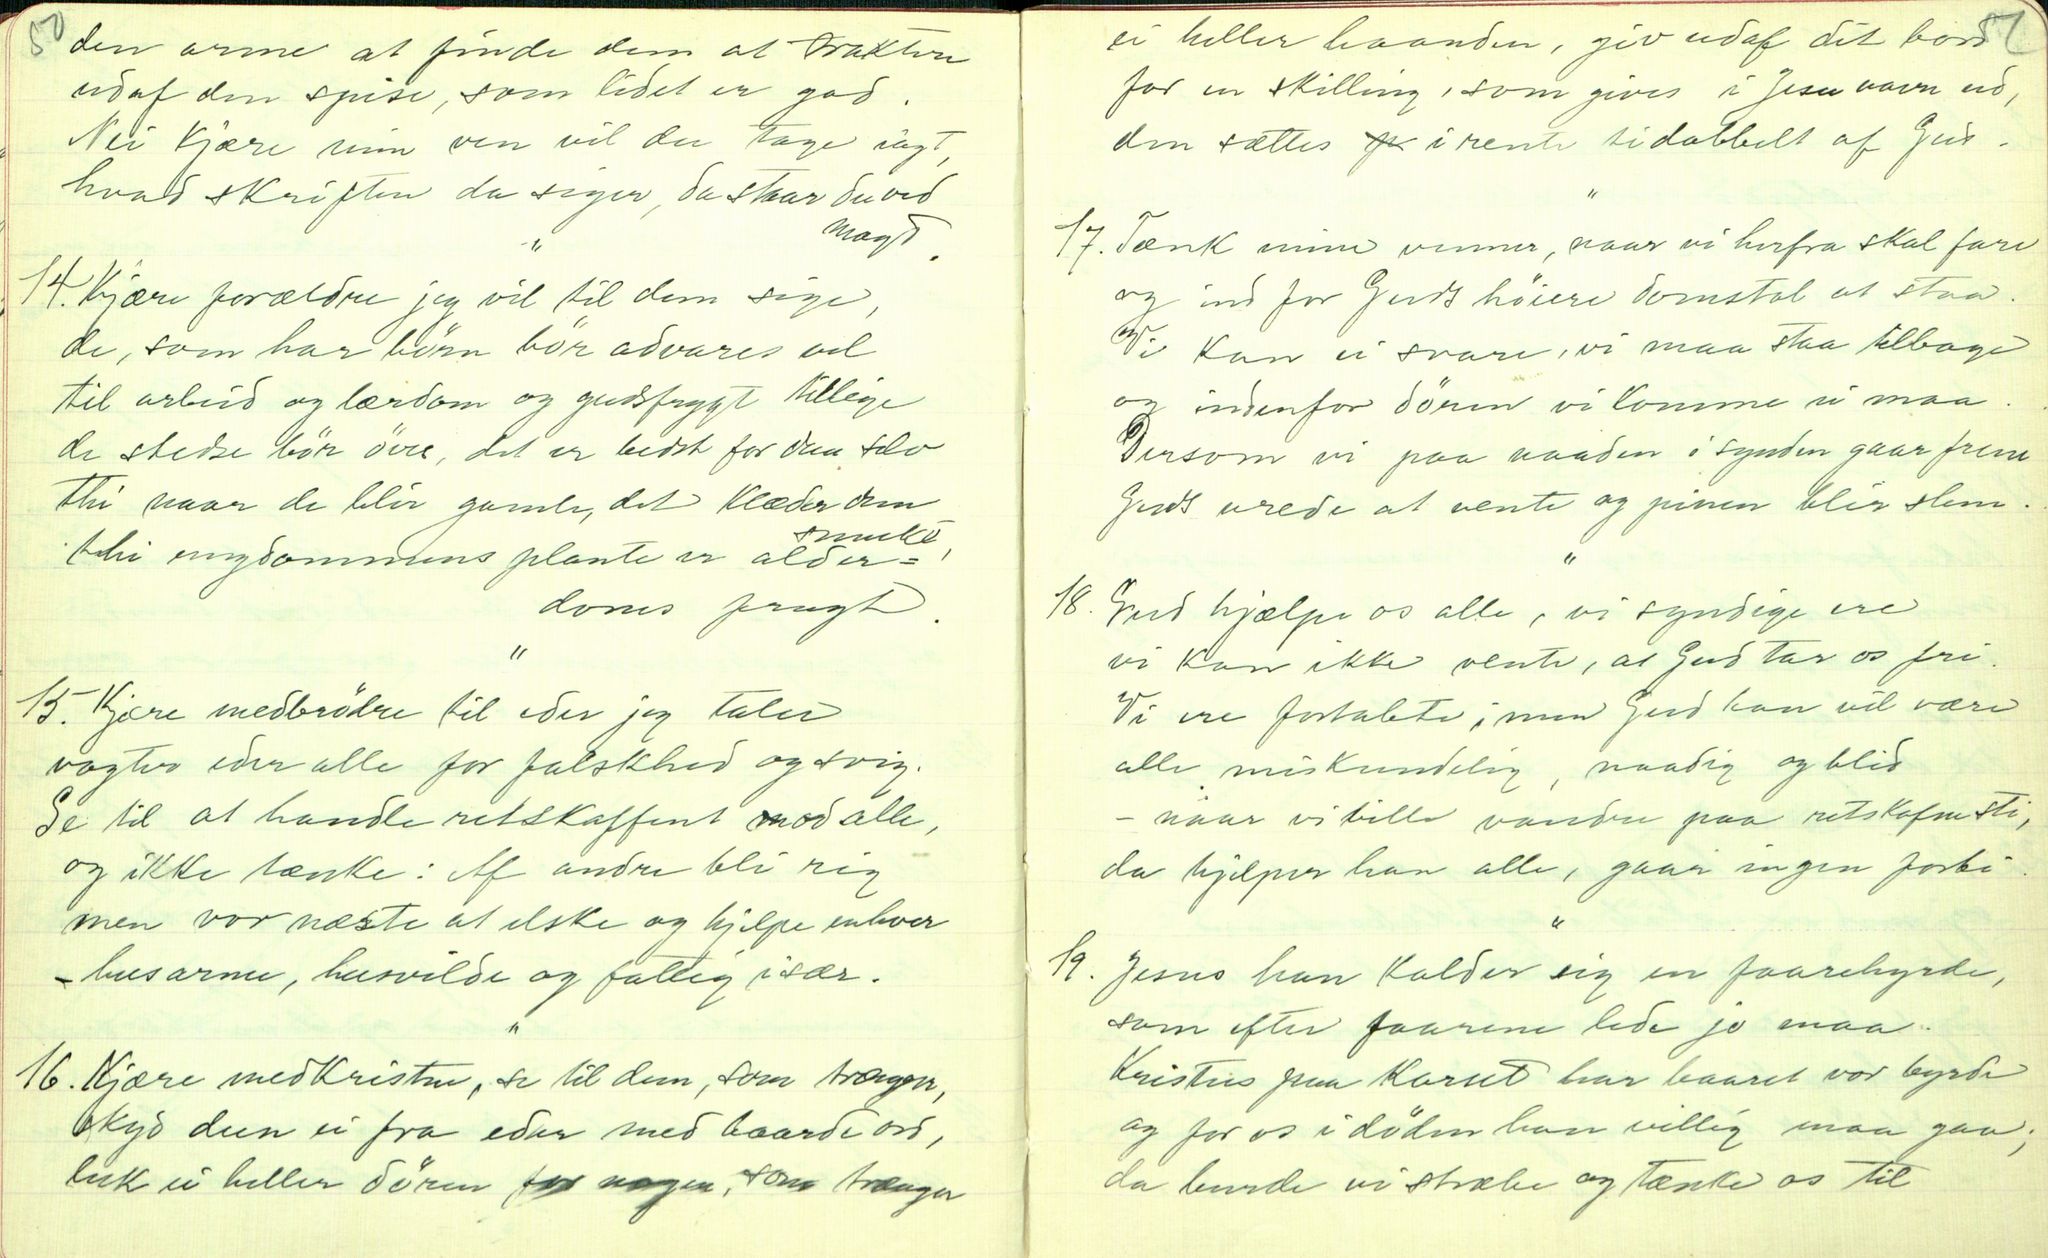 50
den arme at finde dem at traktere
udaf den spise, som lidet er god.
Nei kjære min ven vil du tage iagt,
hvad skriften da siger, da staar du ved
magt.
"
14. Kjære forældre jeg vil til dem sige,
de, som har børn bör advares vel
til arbeid og lærdom og gudsfrygt tillige
de stedse bör öve, det er bedst for dem selv
thi naar de blir gamle, det klæder dem
smukt,
thi ungdommens plante er alder=
doms frugt.
"
15. Kjære medbrödre til eder jeg taler
vogter eder alle for falskhed og svig.
Se til at handle retskaffent mod alle,
og ikke tænke: Af andre bli rig
men vor næste at elske og hjelpe enhver
- husarme, husvilde og fattig især.
"
16. Kjære medkristne, se til dem, som trænger,
skyd dem ei fra eder med haarde ord,
luk ei heller dören for nogen, som trænger
51
ei heller haanden, giv udaf dit bord
for en skilling, som gives i Jesu navn ud,
den sættes i rente tidobbelt af Gud.
"
17. Tænk mine venner, naar vi herfra skal fare
og ind for Guds höiere domstol at staa.
Vi kan ei svare, vi maa staa tilbage
og indenfor dören vi komme ei maa.
Dersom vi paa naaden i synden gaar frem
Guds vrede at vente og pinen blir slem.
"
18. Gud hjælpe os alle, vi syndige ere
vi kan ikke vente, at Gud tar os fri.
Vi ere fortabte, men Gud han vil være
alle miskundelig, naadig og blid
- naar vi ville vandre paa retskafne sti,
da hjelper han alle, gaar ingen forbi.
"
19. Jesus han kalder sig en faarehyrde,
som efter faarene lede jo maa.
Kristus paa korset har baaret vor byrde
og for os i döden han villig maa gaa;
da burde vi stræbe og tænke os til